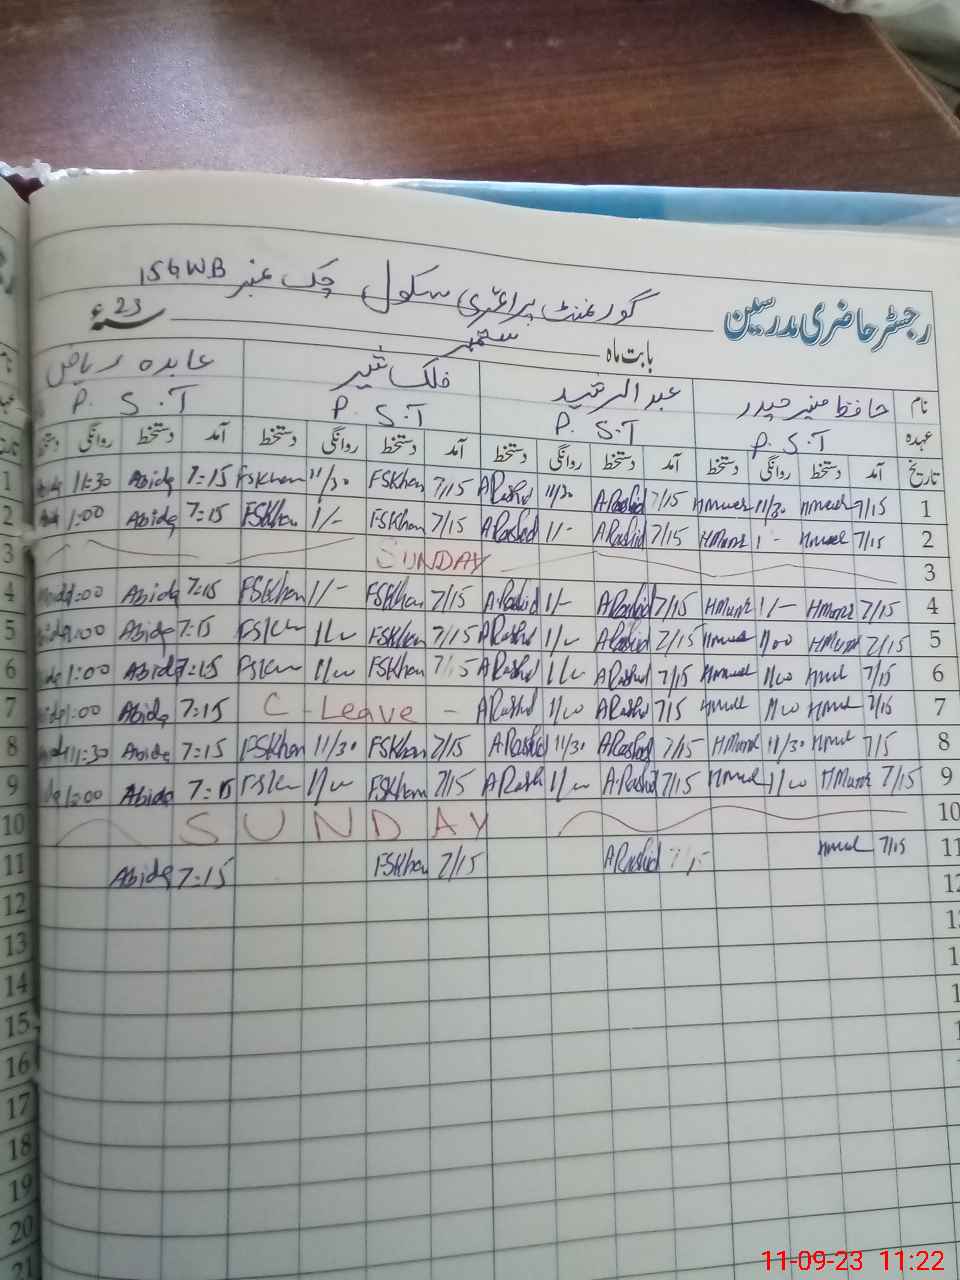 گورنمنٹ پرائمری سکول چک نمبر 154WB
رجسٹر حاضری مدرسین
بابت ماہ ستمبر سنہ 23ء
نام حافظ منیر حیدر عبدالرشید فلک شیر عابدہ ریاض
عہدہ P.S.T P.S.T P.S.T P.S.T
تاریخ آمد دستخط روانگی دستخط آمد دستخط روانگی دستخط آمد دستخط روانگی دستخط آمد دستخط روانگی دستخط
1 11:30 Abida 7:15 FSKhan 11/30 FSKhan 7/15 ARashid 11/30 ARashid 7/15 11/30 7/15 1
2 1:00 Abida 7:15 FSKhan 1/- FSKhan 7/15 ARashid 1/- ARashid 7/15 7/15 2
3 SUNDAY 3
4 1:00 Abida 7:15 FSKhan 1/- FSKhan 7/15 ARashid 1/- ARashid 7/15 1/- 7/15 4
5 1:00 Abida 7:15 FSKhan 7/15 ARashid ARashid 7/15 1/00 7/15 5
6 1:00 Abida 7:15 FSKhan 7/15 ARashid ARashid 7/15 7/15 6
7 1:00 Abida 7:15 C - Leave - ARashid ARashid 7/15 7/15 7
8 11:30 Abida 7:15 FSKhan 11/30 FSKhan 7/15 ARashid 11/30 ARashid 7/15 11/30 7/15 8
9 1:00 Abida 7:15 FSKhan 7/15 ARashid ARashid 7/15 7/15 9
10 SUNDAY 10
11 Abida 7:15 FSKhan 7/15 ARashid 7/15 7/15 11
12 12
13
14
15
16
17
18
19
20
21
11-09-23 11:22